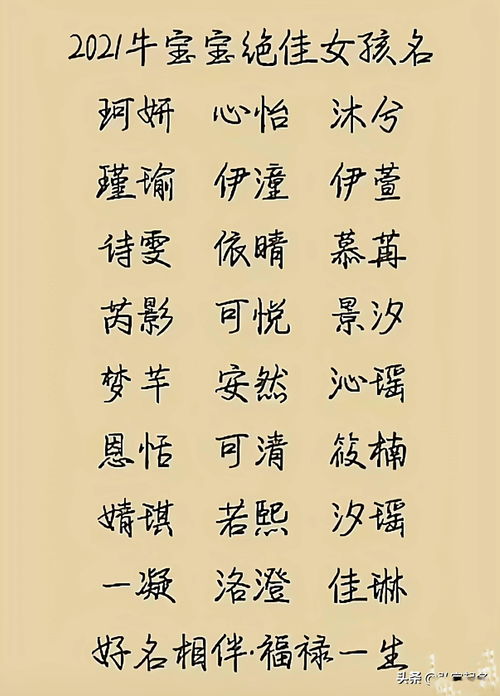 2021牛宝宝绝佳女孩名
珂妍 心怡 沐兮
瑾瑜 伊潼 伊萱
诗雯 依晴 慕苒
芮影 可悦 景汐
梦芊 安然 沁瑶
恩恬 可清 筱楠
婧琪 若熙 汐瑶
一凝 洛澄 佳琳
好名相伴·福禄一生
头条